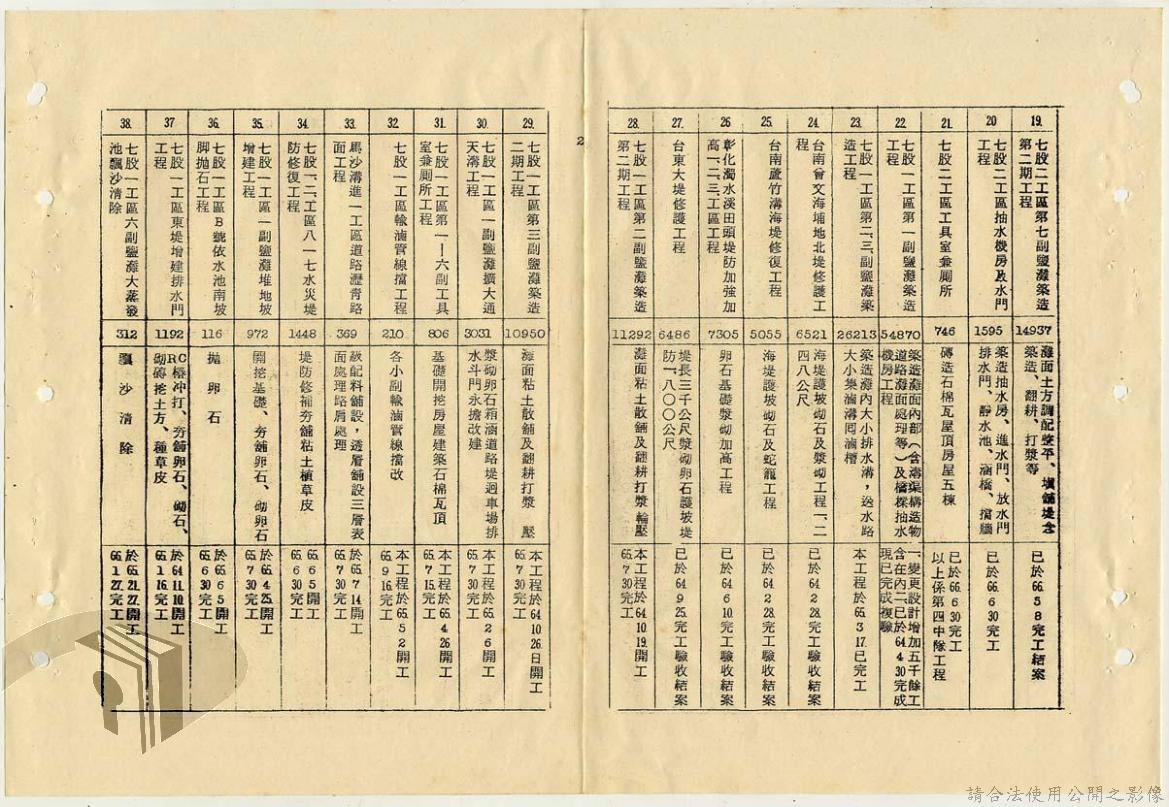 19.
七股二工區第七副鹽灘築造
第二期工程
14937
灘面土方調配整平、填舖堤
築造、翻耕、打漿等
已於66.5.8完工結案
20
七股二工區抽水機房及水門
工程
1595
築造抽水房、進水門、放水門
排水門、靜水池、涵橋、擋牆
已於66.6.30完工
21.
七股二工區工具室兼廁所
746
磚造石棉瓦屋頂房屋五棟
已於66.6.30完工
以上係第四中隊工程
22.
七股一工區第一副鹽灘築造
工程
54870
築造灘面內部(含溝渠構造物
道路灘面處理等)及橋樑抽水
機房工程
一、變更設計增加五千餘工
含在內二、已於64.4.30完成
現已完成複驗
23.
七股一工區第二、三副鹽灘築
造工程
26213
築造灘內大小排水溝,送水路
大小集滷溝囤滷槽
本工程於65.3.17.已完工
24.
台南曾文海埔地北堤修護工
程
6521
海堤護坡砌石及漿砌工程一、二
四八公尺
已於64.2.28.完工驗收結案
25.
台南蘆竹溝海堤修復工程
5055
海堤護坡砌石及蛇籠工程
已於64.2.28.完工驗收結案
26
彰化濁水溪田頭堤防加強加
高一、二、三、工區工程
7305
卵石基礎漿砌加高工程
已於64.6.10.完工驗收結案
27.
台東大堤修護工程
6486
堤長三千公尺漿砌卵石護坡堤
防一、八〇〇公尺
已於64.9.25.完工驗收結案
28.
七股一工區第二副鹽灘築造
第二期工程
11292
灘面粘土散舖及翻耕打漿輪壓
本工程於64.10.19.開工
65.7.30完工
2
29.
七股一工區第三副鹽灘築造
二期工程
10950
灘面粘土散舖及翻耕打漿 壓
本工程於64.10.26.日開工
65.7.30完工
30.
七股一工區一副鹽灘擴大通
天溝工程
3031
漿砌卵石箱涵道路堤迴車場排
水斗門永擔改建
本工程於65.2.6開工
65.7.30完工
31.
七股一工區第一—六副工具
室兼廁所工程
806
基礎開挖房屋建築石棉瓦頂
本工程於65.4.26開工
65.7.15.完工
32.
七股一工區輸滷管線擋工程
210
各小副輸滷管線擋改
本工程於65.5.2開工
65.9.16.完工
33.
馬沙溝進一工區道路瀝青路
面工程
369
級配料舖設,透層舖設三層表
面處理路肩處理
於65.7.14.開工
65.7.30完工
34.
七股一、二、工區八一七水災堤
防修復工程
1448
堤防修補夯舖粘土植草皮
65.6.5開工
65.6.30完工
35.
七股一工區一副鹽灘堆地坡
增建工程
972
開挖基礎、夯舖卵石、砌卵石
於65.4.25.開工
65.7.30完工
36.
七股一工區B號依水池南坡
脚拋石工程
116
拋卵石
於65.6.5開工
65.6.30完工
37
七股一工區東堤增建排水門
工程
1192
RC樁冲打、夯舖卵石、砌石、
砌磚挖土方、種草皮
於64.11.10.開工
65.1.16.完工
38.
七股一工區六副鹽灘大蒸發
池飄沙清除
312
飄沙清除
於65.21.27.開工
66.1.27.完工
請合法使用公開之影像